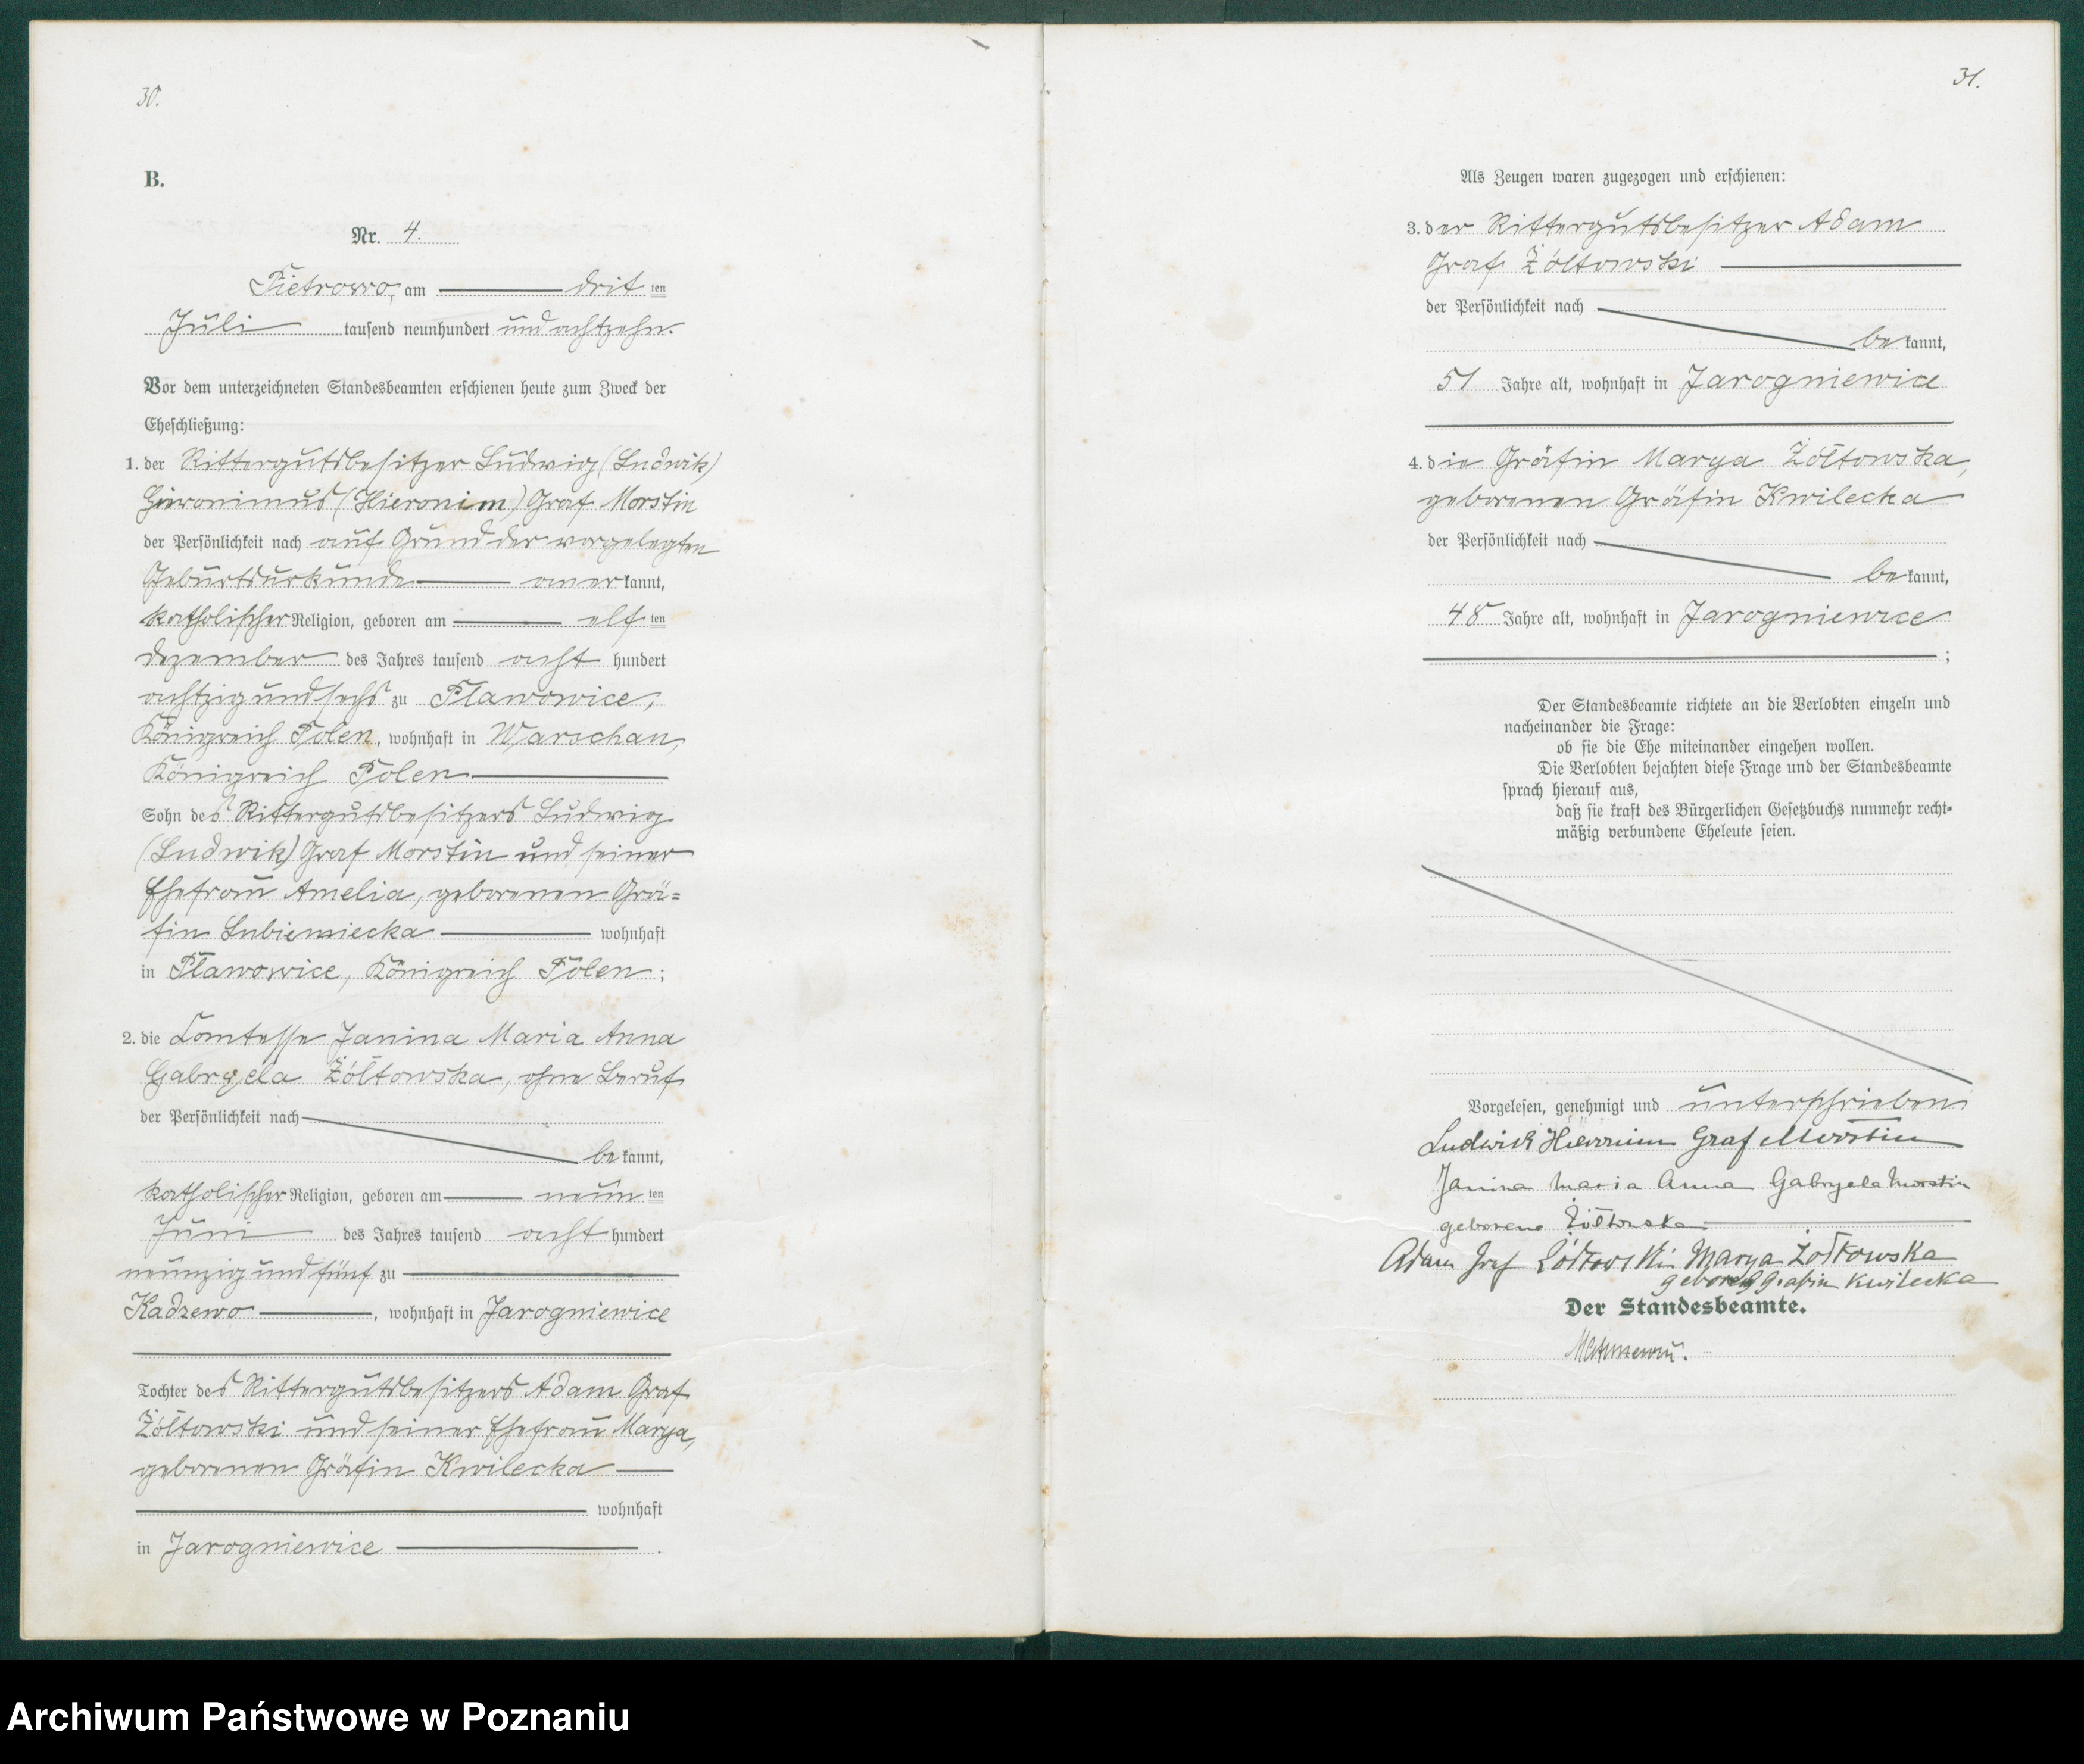 30.
B.
Nr. 4.
Pietrowo, am dritten
Juli tausend neunhundert und achtzehn.
Vor dem unterzeichneten Standesbeamten erschienen heute zum Zweck der
Eheschließung:
1. der Rittergutsbesitzer Ludwig (Ludwik)
Hieronimus (Hieronim) Graf Morstin
der Persönlichkeit nach auf Grund der vorgelegten
Geburtsurkunde anerkannt,
katholischer Religion, geboren am elften
Dezember des Jahres tausend achthundert
achtzig und sechs zu Plawowice,
Königreich Polen, wohnhaft in Warschau,
Königreich Polen
Sohn des Rittergutsbesitzers Ludwig
(Ludwik) Graf Morstin und seiner
Ehefrau Amelia, geborenen Grä=
fin Lubieniecka wohnhaft
in Pławowice, Königreich Polen;
2. die Comtesse Janina Maria Anna
Gabryela Żółtowska, ohne Beruf
der Persönlichkeit nach
bekannt,
katholischer Religion, geboren am neunten
Juni des Jahres tausend achthundert
neunzig und fünf zu
Kadzewo, wohnhaft in Jarogniewice
Tochter des Rittergutsbesitzers Adam Graf
Żółtowski und seiner Ehefrau Marya,
geborenen Gräfin Kwilecka
wohnhaft
in Jarogniewice.
31.
Als Zeugen waren zugezogen und erschienen:
3. der Rittergutsbesitzer Adam
Graf Żółtowski
der Persönlichkeit nach
bekannt,
51 Jahre alt, wohnhaft in Jarogniewice
4. die Gräfin Marya Żółtowska,
geborenen Gräfin Kwilecka
der Persönlichkeit nach
bekannt,
48 Jahre alt, wohnhaft in Jarogniewice
;
Der Standesbeamte richtete an die Verlobten einzeln und
nacheinander die Frage:
ob sie die Ehe miteinander eingehen wollen.
Die Verlobten bejahten diese Frage und der Standesbeamte
sprach hierauf aus,
daß sie kraft des Bürgerlichen Gesetzbuchs nunmehr recht-
mäßig verbundene Eheleute seien.
Vorgelesen, genehmigt und unterschrieben
Ludwik Hieronim Graf Morstin
Janina Maria Anna Gabryela Morstin
geborene Żółtowska
Adam Graf Żółtowski Marya Żółtowska
geborene Gräfin Kwilecka
Der Standesbeamte.
Archiwum Państwowe w Poznaniu